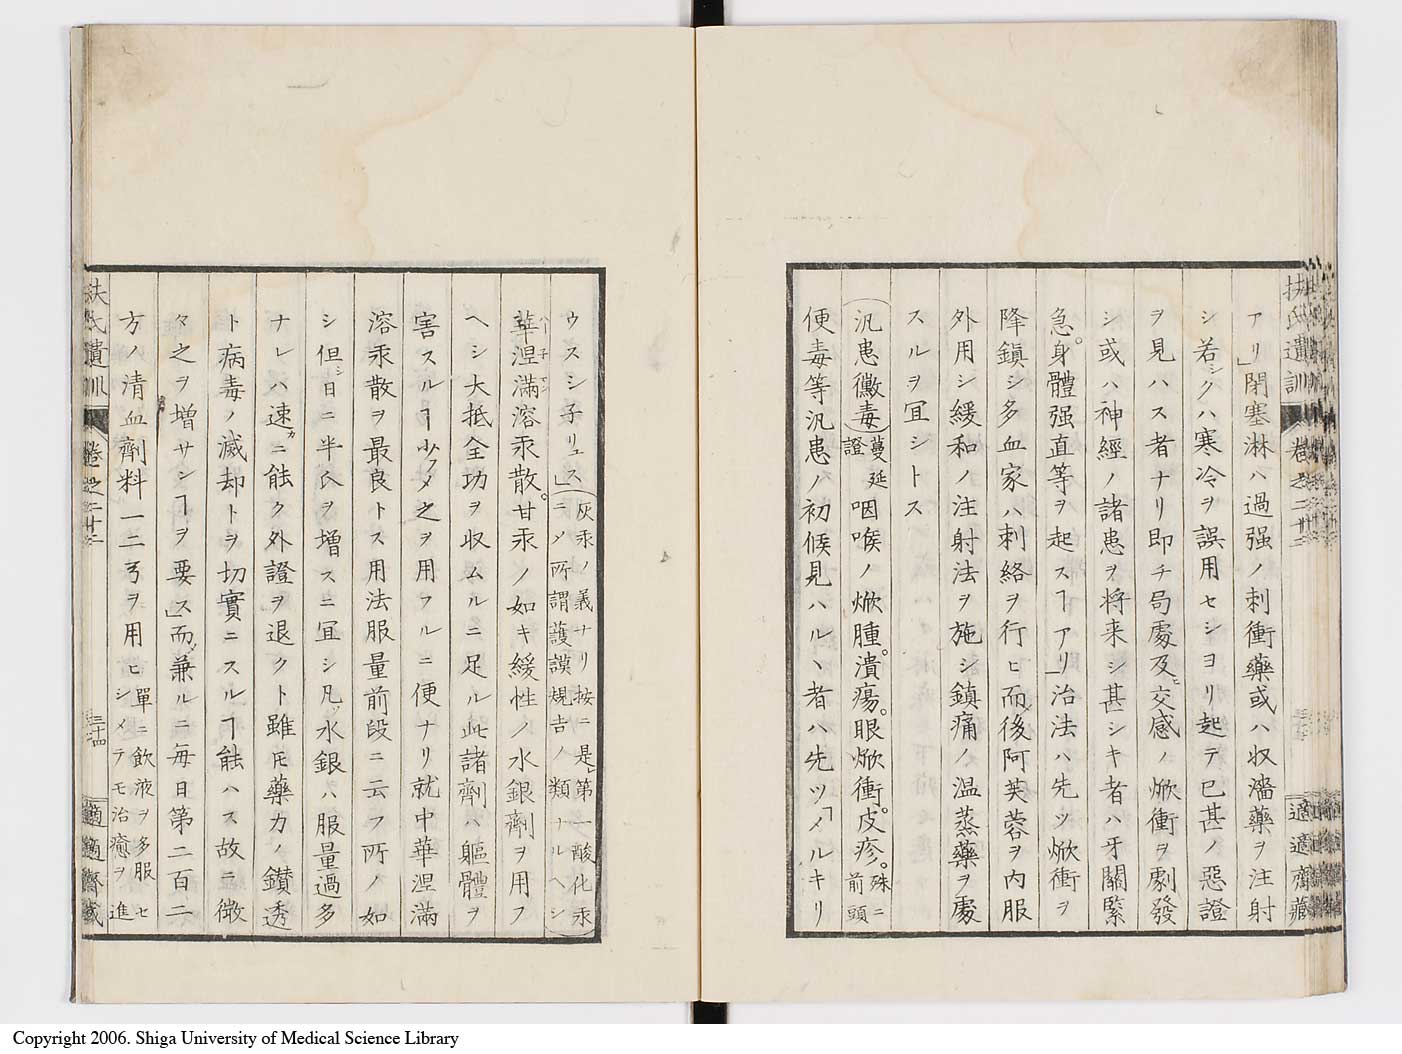 扶氏遺訓 卷之二十三 適適齋藏
アリ」閉塞淋ハ過强ノ刺衝藥或ハ收濇藥ヲ注射
シ若シクハ寒冷ヲ誤用セシヨリ起テ已甚ノ惡證
ヲ見ハス者ナリ即チ局處及ヒ交感ノ焮衝ヲ劇發
シ或ハ神經ノ諸患ヲ将来シ甚シキ者ハ牙關緊
急。身體强直等ヲ起スヿアリ」治法ハ先ツ焮衝ヲ
降鎭シ多血家ハ刺絡ヲ行ヒ而後阿芙蓉ヲ内服
外用シ緩和ノ注射法ヲ施シ鎮痛ノ温蒸藥ヲ處
スルヲ冝シトス
汎患黴毒 蔓延證 咽喉ノ焮腫。潰瘍。眼焮衝。皮疹。殊ニ前頭
便毒等汎患ノ初候見ハルヽ者ハ先ツ「メルキリ
ウスシ子リュス」(灰汞ノ義ナリ按ニ是第一酸化汞
ニメ所謂護謨規吉ノ類ナルヘシ)
華涅滿溶汞散。甘汞ノ如キ緩性ノ水銀劑ヲ用フ
ヘシ大抵全功ヲ收ムルニ足ル此諸劑ハ軀體ヲ
害スルヿ少フメ之ヲ用フルニ便ナリ就中華涅滿
溶汞散ヲ最良トス用法服量前段ニ云フ所ノ如
シ但シ日ニ半氏ヲ增スニ冝シ凡ソ水銀ハ服量過多
ナレハ速カニ能ク外證ヲ退クト雖モ藥力ノ鑚透
ト病毒ノ滅却トヲ切實ニスルヿ能ハス故ニ漸
々之ヲ增サンヿヲ要ス」而ノ兼ルニ毎日第二百二
方ノ清血劑料一二弓ヲ用ヒ 單ニ飲液ヲ多服セ
シメテモ治癒ヲ進
扶氏遺訓 卷之二十三 三十四 適適齋藏
Copyright 2006. Shiga University of Medical Science Library